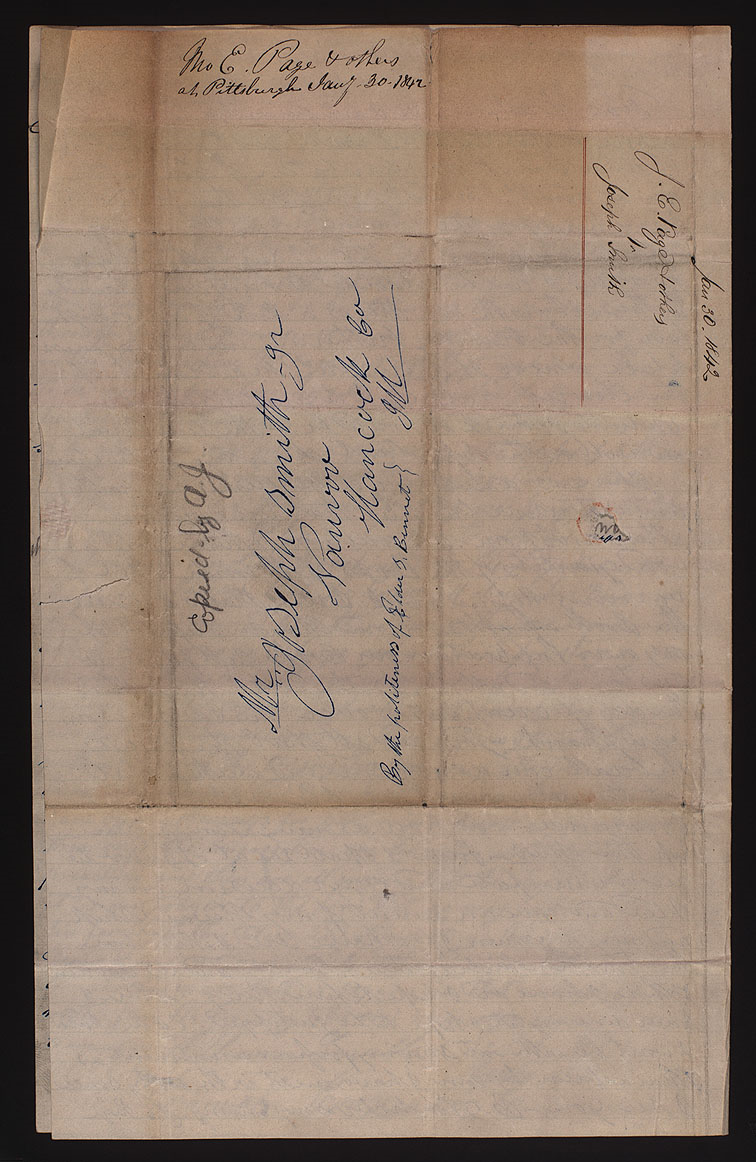 Mo E. Page & others
at Pittsburgh Jany. 30. 1842
Jan 30. 1842
J. E. Page & others
to
Joseph Smith
Mr Joseph Smith Jr
Nauvoo
Hancock Co
Ill
By the politeness of Elder S. Bennet }
copied by A. J.